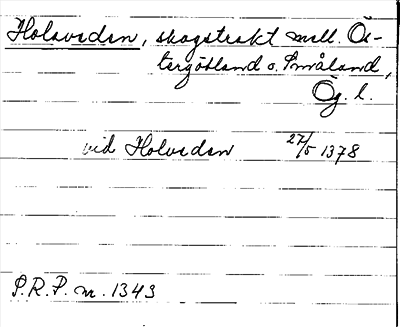 Holaveden, skogstrakt mell. Ös-
tergötland o. Småland,
Ög. l.
vid Holveden 27/5 1378
P.R.P. nr. 1343